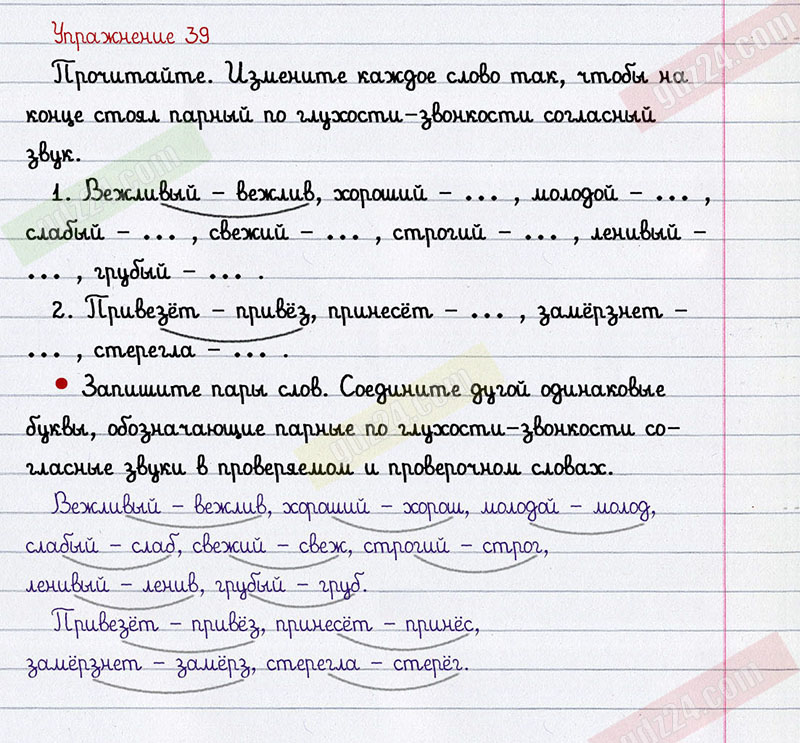 Упражнение 39
Прочитайте. Измените каждое слово так, чтобы на
конце стоял парный по глухости-звонкости согласный
звук.
1. Вежливый – вежлив, хороший – ... , молодой – ... ,
слабый – ... , свежий – ... , строгий – ... , ленивый –
... , грубый – ... .
2. Привезёт – привёз, принесёт – ... , замёрзнет –
... , стерегла – ... .
• Запишите пары слов. Соедините дугой одинаковые
буквы, обозначающие парные по глухости-звонкости со-
гласные звуки в проверяемом и проверочном словах.
Вежливый – вежлив, хороший – хорош, молодой – молод,
слабый – слаб, свежий – свеж, строгий – строг,
ленивый – ленив, грубый – груб.
Привезёт – привёз, принесёт – принёс,
замёрзнет – замёрз, стерегла – стерёг.
gdz24.com
gdz24.com
gdz24.com
gdz24.com